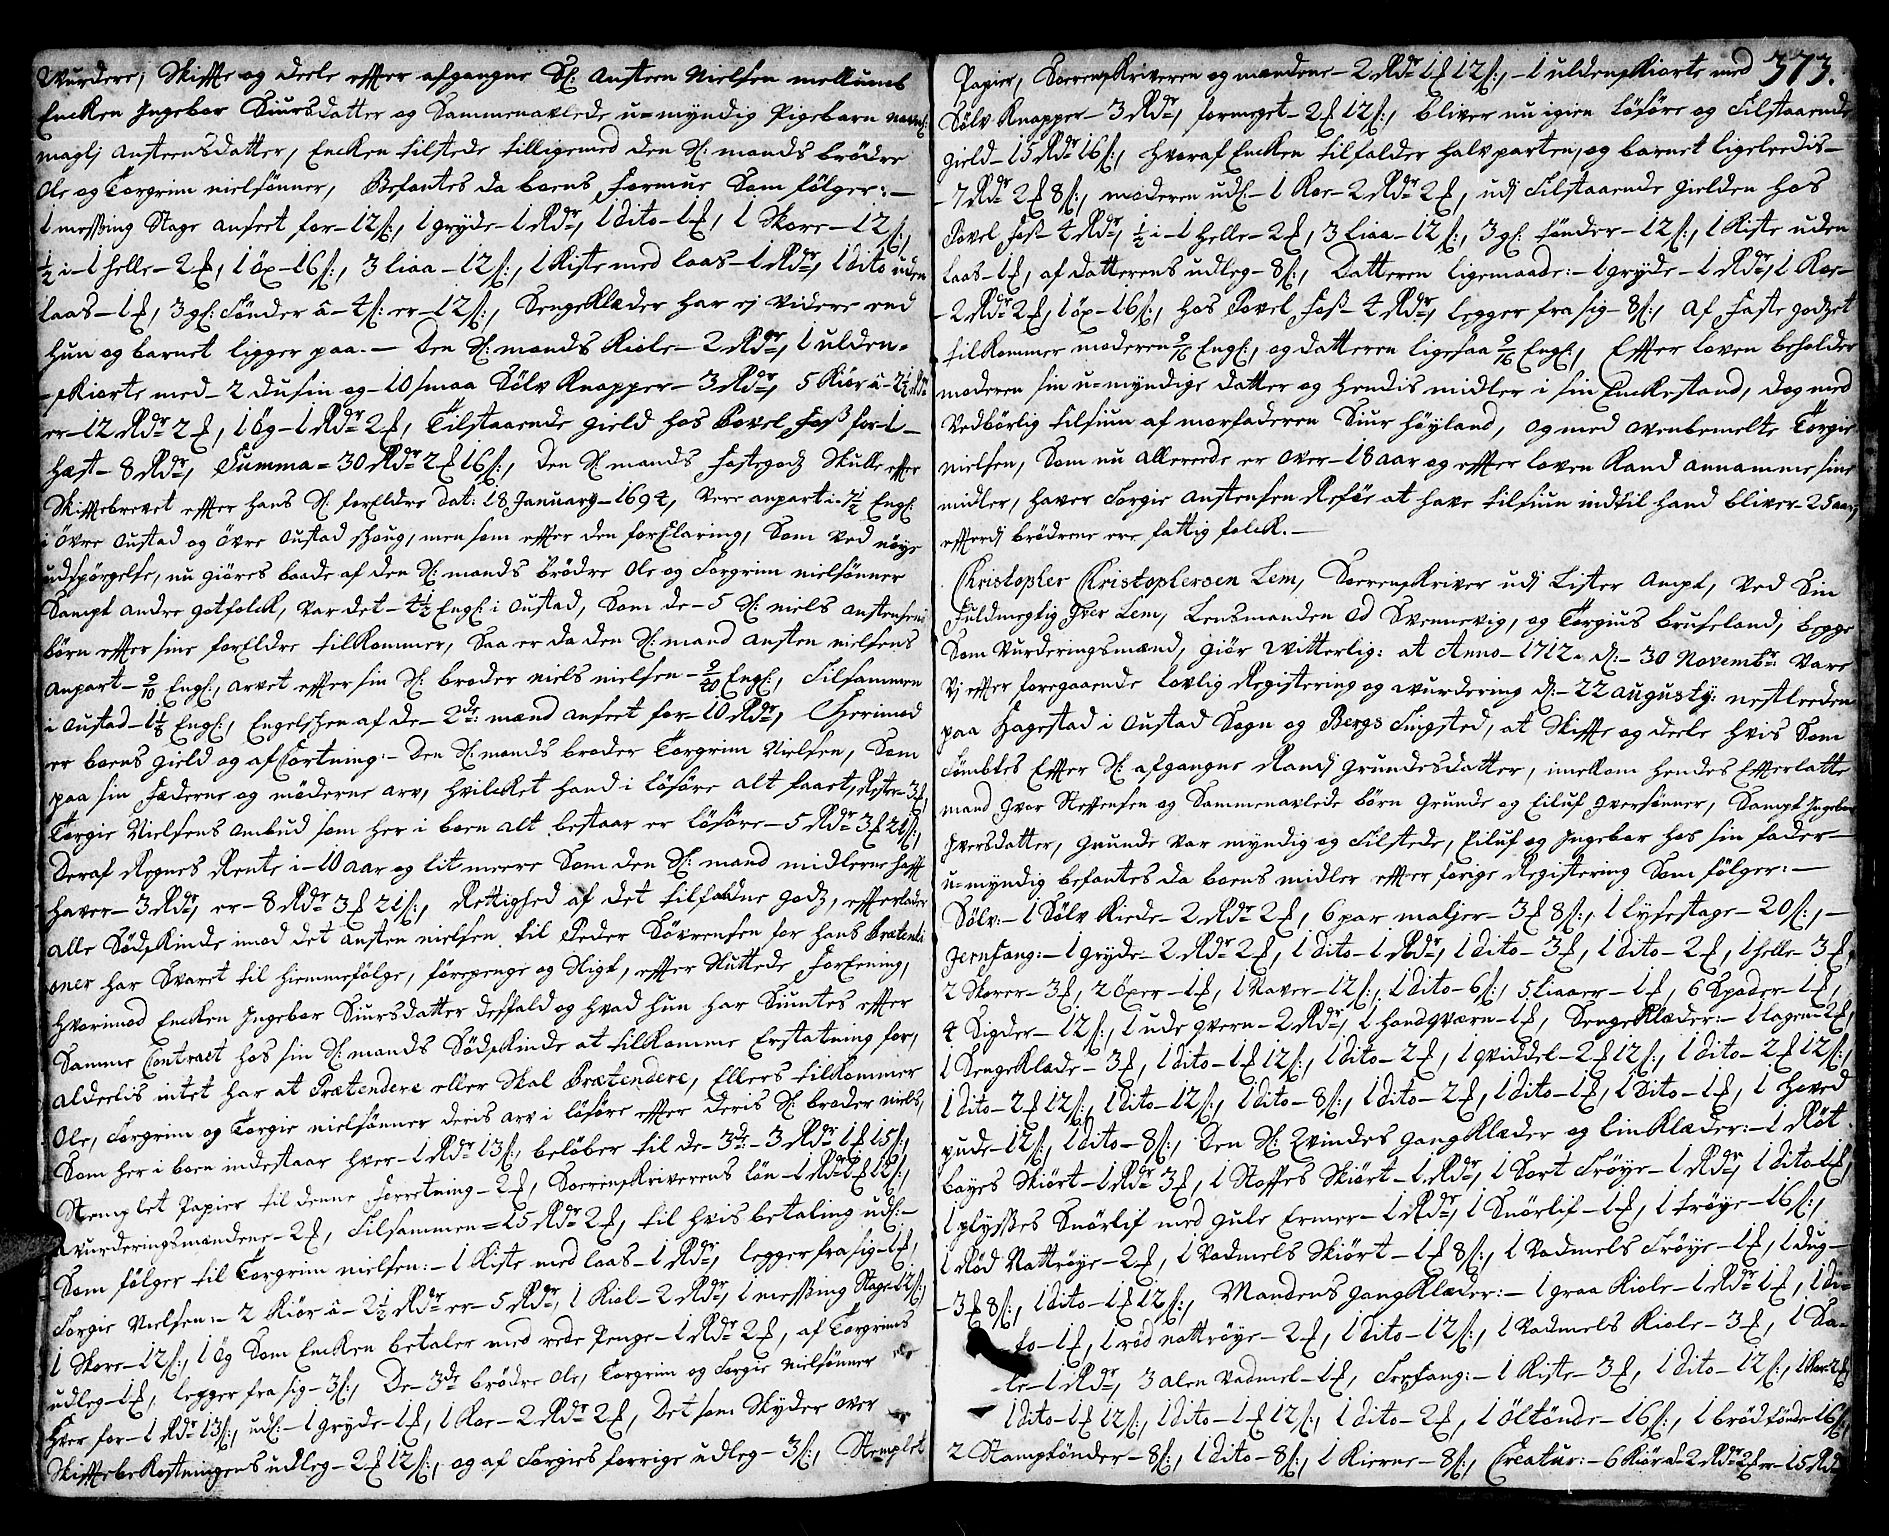 Wurdere, Skiffte og deele effter afgangne Sl: Ansteen Nielsen mellumb
Encken Ingebor Siursdatter og Sammenavlede u=myndig Pigebarn navnl:
maglj Ansteensdatter, Encken tilstede tilligemed den Sl: mands brödre
Ole og Torgrim nielsönner, Befantes da boens formue Som fölger:-
1 messing Stage anseet for-12s:, 1 gryde-1 Rdr, 1 dito-1f, 1 Skore-12s:,
½ i-1 helle-2f, 1 öx-16s:, 3 liaa-12s:, 1 Kiste med laas-1 Rdr, 1 dito uden
laas-1f, 3 gl: Tönder a-4s: er-12s:, Sengeklæder har ej videre end
hun og barnet ligger paa.- Den Sl: mands Kiole-2 Rdr, 1 ulden-
-skiorte med-2 dusin og-10 smaa Sölv Knapper-3 Rdr, 5 Kiör a-2½ Rdr
er-12 Rdr 2f, 1 Ög-1 Rdr 2f, Tilstaaende gield hos Povel Foss for-1-
Hæst-8 Rdr, Summa=30 Rdr 2f 16s:, Den Sl: mands Fastegodz Skulle effter
Skifftebrevet effter hans Sl: forEldre dat: 18 January-1694, Vere anpart i-7½ Engl:
i Övre Austad og Övre Austad shoug, men som effter den forklaring, Som ved nöye
udspörgelse, nu giöres baade af den Sl: mands brödre Ole og Torgrim nielsönner
Sampt andre gotfolck, var det-4½ Engl: i Austad, Som de-5 Sl: niels anstensens
börn effter sine forEldre tilkommer, Saa er da den Sl: mand ansten nielsens
anpart-9/10 Engl:, arvet effter sin Sl: broder niels nielsen-9/40 Engl:, Tilsammen
i Austad-1⅛ Engl:, Engelshen af de-2de: mænd anseet for-10 Rdr, Therimod
er boens gield og afkortning:- Den Sl: mands broder Torgrim Nielsen, Som
paa sin Fæderne og möderne arv, hvilcket hand i löföre alt faaet, Rester-3f,
Torgie Nielsens Ombud som her i boen alt bestaar er löföre-5 Rdr 3f 21s:,
Deraf Regnes Rente i-10 aar og lit meere Som den Sl: mand midlerne hafft
haver-3 Rdr, er-8 Rdr 3f 21s:, Rettighed af det tilfaldne godz, effterlader
alle Södskinde imod det ansten nielsen til Peder Sövrensen for hans Prætenti
oner har Svaret til hiemmefölge, Förepenge og Skigt, effter Sluttede Forening,
Hvorimod Encken Ingebor Siursdatter dessfald og hvad hun har Suntes effter
Samme Contract hos sin Sl: mands Södskinde at tilkomme Erstatning for,
alderlis intet har at Prætendere eller Skal Prætendere, Ellers tilkommer
Ole, Torgrim og Torgie nielsönner deris arv i löföre effter deris Sl: broder niels,
Som her i boen indestaar hver-1 Rdr 13s:, belöber til de-3de-3 Rdr 1f 15s:,
Stemplet Papier til denne Forretning-2f, Sorenskriverens lön-1 Rdr 1f 12s:,
Wurderingsmændene-2f, Tilsammen=15 Rdr 2f, til hvis betaling udl:-
Som fölger til Torgrim nielsen:-1 Kiste med laas-1 Rdr, legger fra sig-1f,
Torgie Nielsen:-2 Kiör a-2½ Rdr er-5 Rdr, 1 Kiol-2 Rdr, 1 messing Stage-12s:,
1 Skore-12s:, 1 Ög Som Encken betaler med rede Penge-1 Rdr 2f, af Torgrims
udleg-1f, legger fra sig-3s:, De-3de brödre Ole, Torgrim og Torgie nielsönner
Hver for-1 Rdr 13s:, udl:-1 gryde-1f, 1 Koe-2 Rdr 2f, Det som Skyder over
Skifftebekostningens udleg-2f 12s:, og af Torgies forrige udleg-3s:, Stemplet
373.
Papier, Sorenskriveren og mændene-2 Rdr 1f 12s:,-1 uldenskiorte med
Sölv Knapper-3 Rdr, formeget-2f 12s:, bliver nu igien löföre og Tilstaaende
gield-15 Rdr 16s:, hvoraf Encken tilfalder halvparten, og barnet ligeledis-
-7 Rdr 2f 8s:, moderen udl-1 Koe-2 Rdr 2f, udj Tilstaaende gielden hos
Povel Foss-4 Rdr, ½ i-1 helle-2f, 3 liaa-12s:, 3 gl: tönder-12s:, 1 Kiste uden
laas-1f, af datterens udleg-8s:, Datteren ligemaade:-1 gryde-1 Rdr, 1 Koe-
-2 Rdr 2f, 1 öx-16s:, hos Povel Foss-4 Rdr, legger fra sig-8s:, af Faste godzet
tilkommer moderen 9/16 Engl:, og datteren ligesaa 9/16 Engl:, Effter loven beholder
moderen sin u=myndige datter og hendis midler i sin Enckestand, dog med
Vedbörlig tilsiun af morfaderen Siur Höyland, og med ovenbemelte Torgie
nielsen, Som nu allereede er over-18 aar og effter loven kand annamme sine
midler, haver Torgie Anstensen Reföe at have tilsiun indtil hand bliver-25 aar,
effterdj brödrene ere fattig folck.-
Christopher Christophersen Lem, Sorenskriver udj Lister Ampt, ved Sin
Fuldmegtig Iver Lem, Lensmanden Od Svennevig, og Torgius bruseland, begge
Som Vurderingsmænd, giör Witterlig: at Anno-1712. d:-30 Novembr Vare
Vj effter foregaaende lovlig Registering og wurdering d:-22 augusty: nestleeden
paa Hagestad i Austad Sogn og Bergs Tingsted, at Skiffte og deele hvis Som
fombtes Effter Sl: afgangne Randj Grundesdatter, imellom hendes Effterlatte
mand Iver Steffensen og Sammenavlede börn Grunde og Eiluf Iversönner, Sampt Ingebor
Iversdatter, Grunde var myndig og Tilstede, Eiluf og Ingebor hos sin fader-
u=myndig befantes da boens midler effter forige Registering Som fölger:-
Sölv:-1 Sölv Kiede-2 Rdr 2f, 6 par maljer-3f 8s:, 1 lysestage-20s:,-
Jernfang:-1 gryde-2 Rdr 2f, 1 dito-1 Rdr, 1 dito-3f, 1 dito-2f, 1 helle-3f,
2 Skorer-3f, 2 Öxer-1f, 1 Naver-12s:, 1 dito-6s:, 5 liaaer-1f, 6 Spader-1f,
4 Sigder-12s:, 1 ude qvern-2 Rdr, 1 handqværn-1f, Sengeklæder:-1 lagen-2f,
1 Sengeklæde-3f, 1 dito-1f 12s:, 1 dito-2f, 1 qviddel-2f 12s:, 1 dito-2f 12s:,
1 dito-2f 12s:, 1 dito-12s:, 1 dito-8s:, 1 dito-2f, 1 dito-1f, 1 dito-1f, 1 hoved
pude-12s:, 1 dito-8s:, Den Sl: Qvindes gangklæder og linklæder:-1 Röt
boyes Skiört-1 Rdr 3f, 1 Stoffes Skiört-1 Rdr, 1 Sort Tröye-1 Rdr, 1 dito-1f,
1 plysses Snörlif med gule Ermer-1 Rdr, 1 Snörlif-1f, 1 tröye-16s:,
1 Röd Nattröye-2f, 1 Vadmels Skiört-1f 8s:, 1 Vadmels Tröye-1f, 1 dug-
-3f 8s:, 1 dito-1f 12s:, Mandens gangklæder:-1 graa Kiole-1 Rdr 1f, 1 di=
to-1f, 1 röd nattröye-2f, 1 dito-12s:, 1 Vadmels Kiole-3f, 1 Sa-
le-1 Rdr, 3 alen Vadmel-1f, Træfang:-1 Kiste-3f, 1 dito-12s:, 1 Kar-2f
1 dito-1f 12s:, 1 dito-1f 12s:, 1 dito-2f, 1 öltönde-16s:, 1 brödtönde-16s:,
2 Stamptönder-8s:, 1 dito-8s:, 1 Kierne-8s:, Creatur:-6 Kiör a-2 Rdr 2f er-15 Rdr